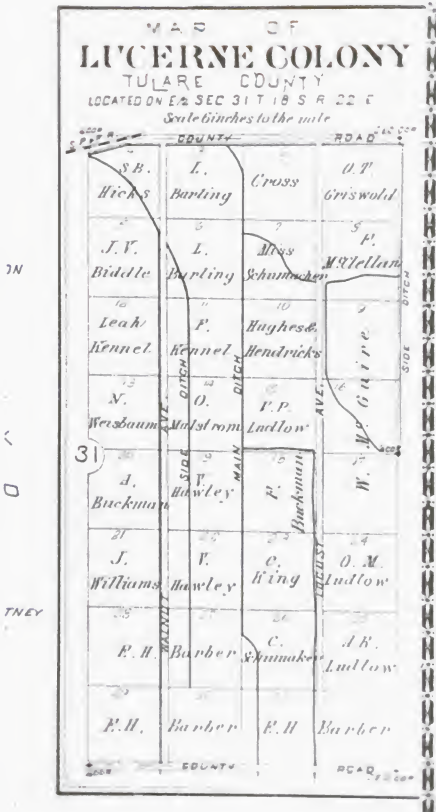 MAP OF
LUCERNE COLONY
TULARE COUNTY
LOCATED ON E/2 SEC 31 T 18 S R 22 E
Scale 6 inches to the mile
S P R R
COUNTY ROAD
SEC COR
S.B. Hicks
L. Barling
Cross
O.T. Griswold
J.V. Biddle
L. Barling
Miss Schumacher
F. McClellan
Leah Kennel
F. Kennel
Hughes & Hendricks
W. McGuire
N. Weisbaum
O. Malstrom
V.P. Ludlow
31
A. Buckman
V. Hawley
F. Buckman
J. Williams
V. Hawley
C. King
O.M. Ludlow
E.H. Barber
C. Schumaker
J.K. Ludlow
E.H. Barber
E.H. Barber
WALNUT AVE
SIDE DITCH
MAIN DITCH
LOCUST AVE.
SIDE DITCH
COUNTY ROAD
TNEY